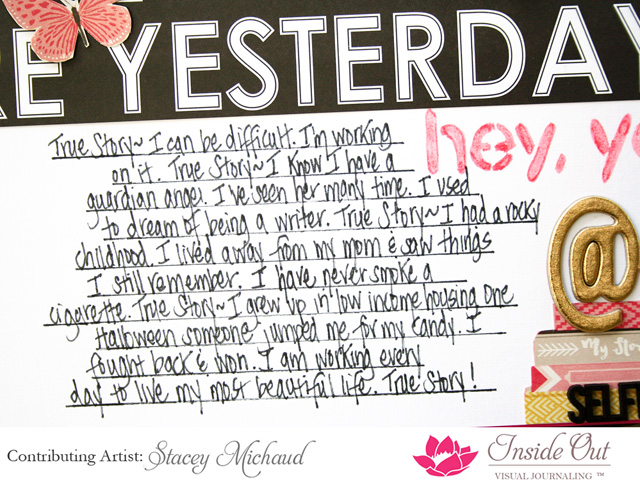 RE YESTERDAY
hey, y
True Story~ I can be difficult. I'm working
on it. True Story~ I know I have a
guardian angel. I've seen her many time. I used
to dream of being a writer. True Story~ I had a rocky
childhood. I lived away from my mom & saw things
I still remember. I have never smoke a
cigarette. True Story~ I grew up in low income housing one
Halloween someone jumped me for my candy. I
fought back & won. I am working every
day to live my most beautiful life. True Story!
@
My Sto
SELF
Contributing Artist: Stacey Michaud
Inside Out
VISUAL JOURNALING ™